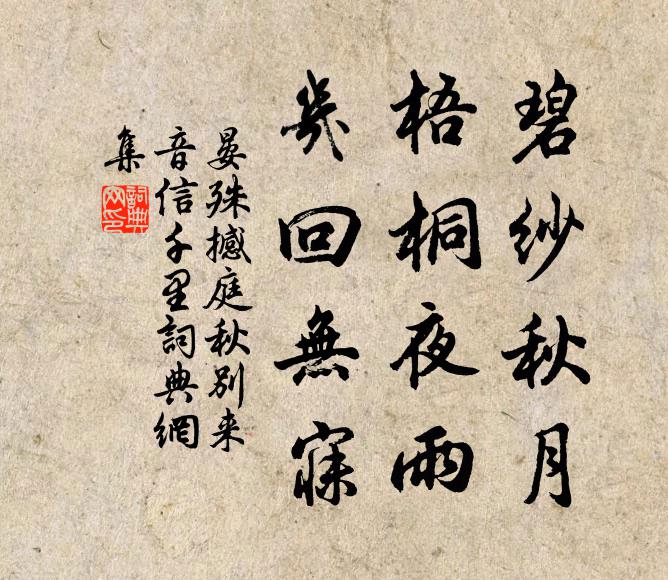 碧纱秋月
梧桐夜雨
幾回無寐
晏殊撼庭秋别来
音信千里詞典網
集
詞典
网印